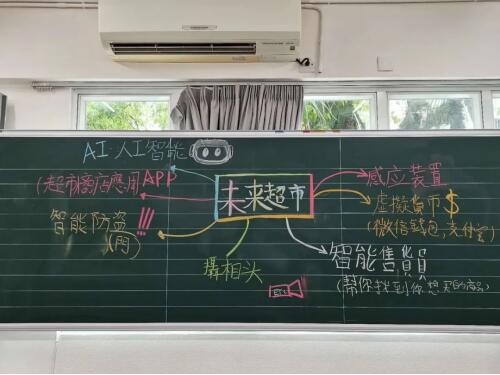 AI 人工智能
(超市商店應用APP
智能防盗!!!
(門)
未来超市
感应装置
虛擬貨币$
(微信錢包,支付宝)
智能售貨員
(幫你找到你想买的商品)
攝相头